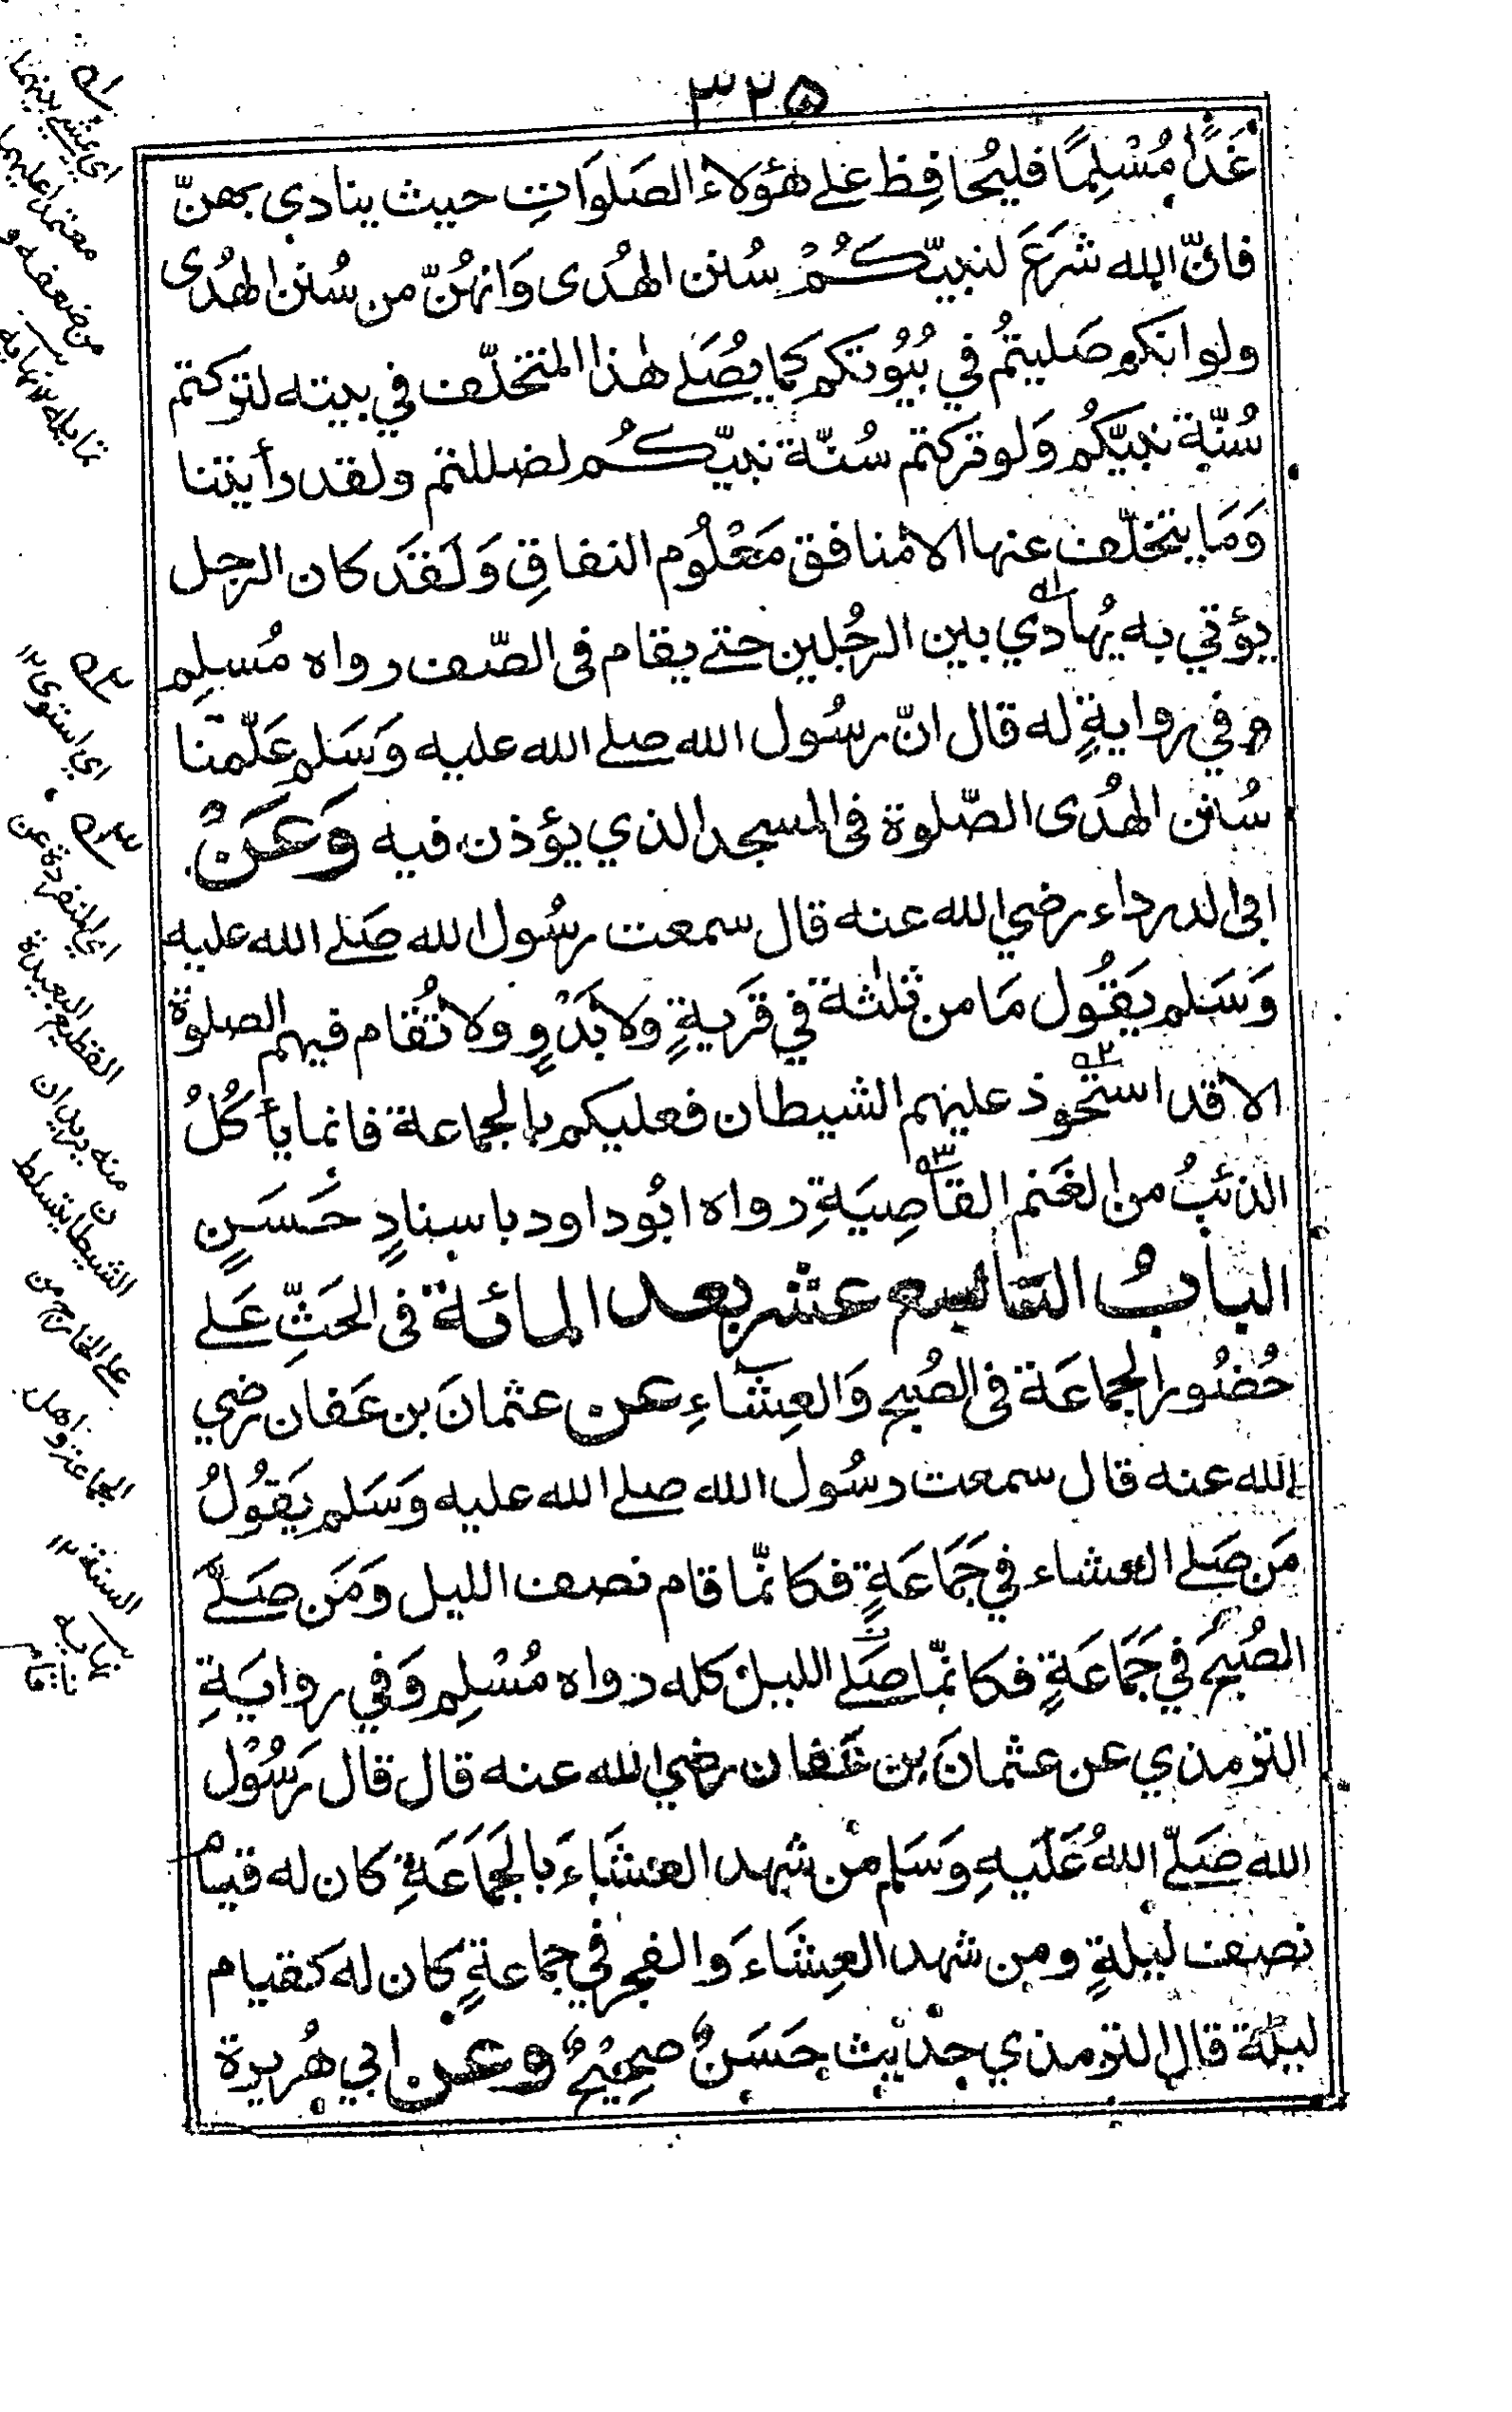 ٣٢٥
غَدًا مُسْلِمًا فليُحافِظ على هٰؤلاء الصَلوَاتِ حيث ينادي بهنّ
فانّ الله شرَعَ لنبيّكُمْ سُنن الهُدى وَانهُنّ من سُنن الهُدى
ولو انكم صَليتُم في بُيُوتكم كما يُصَلے هٰذا المتخلّف في بيته لتركتم
سُنّة نبيّكُم وَلو تركتم سُنّة نبيّكُم لضللتم ولقد رأيتنا
وَمَا يتخلّف عنها الا مُنافق مَعْلُوم النفاقِ وَلَقَدَ كان الرجل
يؤتي به يُهادي بين الرجُلين حتے يقام فى الصّف رواه مُسلِم
و في روايةٍ له قال انّ رسُول الله صلے الله عليه وَسَلم عَلّمنا
سُنن الهُدى الصّلوة فى المسجد الذي يؤذن فيه وَعَنْ
ابى الدرداء رضي الله عنه قال سمعت رسُول الله صَلے الله عليه
وَسَلم يَقُول مَا من ثلٰثة في قَريةٍ ولا بَدْوٍ ولا تُقام فيهم الصلوة
الا قد استحوذ عليهم الشيطان فعليكم بالجماعة فانما يأكُلُ
الذئبُ من الغَنم القاصِيَةِ رواه ابُو داود باسنادٍ حَسَنٍ
البابُ التاسع عشر بعد المائة فى الحَثِّ عَلے
حُضُور الجماعَة فى الصُبح وَالعِشَاءِ عن عثمانَ بن عَفان رضي
الله عنه قال سمعت رسُول الله صلے الله عليه وَسَلم يَقُولُ
مَن صَلے العشاء في جَمَاعَةٍ فكانّما قام نصف الليل وَمَن صَلّے
الصُبحَ في جَمَاعَةٍ فكانمّا صَلے الليل كله رواه مُسْلِم وَفي روايَةِ
الترمذي عن عثمانَ بن عَفان رضي الله عنه قال قال رَسُوْل
الله صَلّے اللهُ عَلَيهِ وَسَلم من شهد العشَاءَ بالجَمَاعَةِ كان له قيام
نصف ليلةٍ ومن شهد العِشَاءَ وَالفجر في جماعةٍ كان له كقيام
ليلة قال الترمذي حديث حَسَنٌ صحِيْحٌ وعن ابي هُريرة
اي يمشي بينهما
معتمدا عليهما
من ضعفه و
تمايله ١٢ نهاية
اي استوى ١٢
اي المنفردة عن
القطيع البعيدة
منه يريد ان
الشيطان يتسلط
على الخارج من
الجماعة واهل
السنة ١٢
نهاية